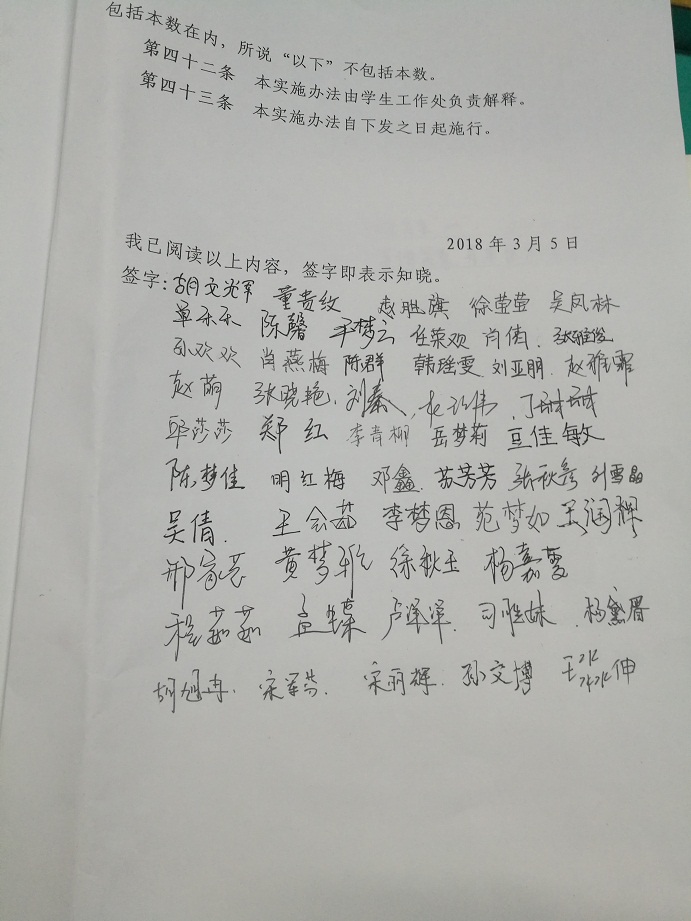 包括本数在内，所说“以下”不包括本数。
第四十二条 本实施办法由学生工作处负责解释。
第四十三条 本实施办法自下发之日起施行。
2018 年 3 月 5 日
我已阅读以上内容，签字即表示知晓。
签字：胡文光军 董贵纹 胜旗 徐莹莹 吴凤林
单乐乐 陈馨 梦云 任荣欢 肖倩 张雅俊
孙欢欢 肖燕梅 陈群 韩瑶雯 刘亚朋 赵雅霏
赵萌 张晓艳 刘秦 伟 丁甜甜
邱莎莎 郑红 李青柳 岳梦莉 豆佳敏
陈梦佳 明红梅 邓鑫 苏芳芳 张秋彦 刘雪晶
吴倩 王会茹 李梦恩 范梦如 王润稞
邢家芸 黄梦 徐秋玉 杨嘉雯
程茹茹 孟 卢洋洋 司雅妹 杨黛眉
胡旭冉 宋军芬 宋丽辉 孙文博 王淼伸